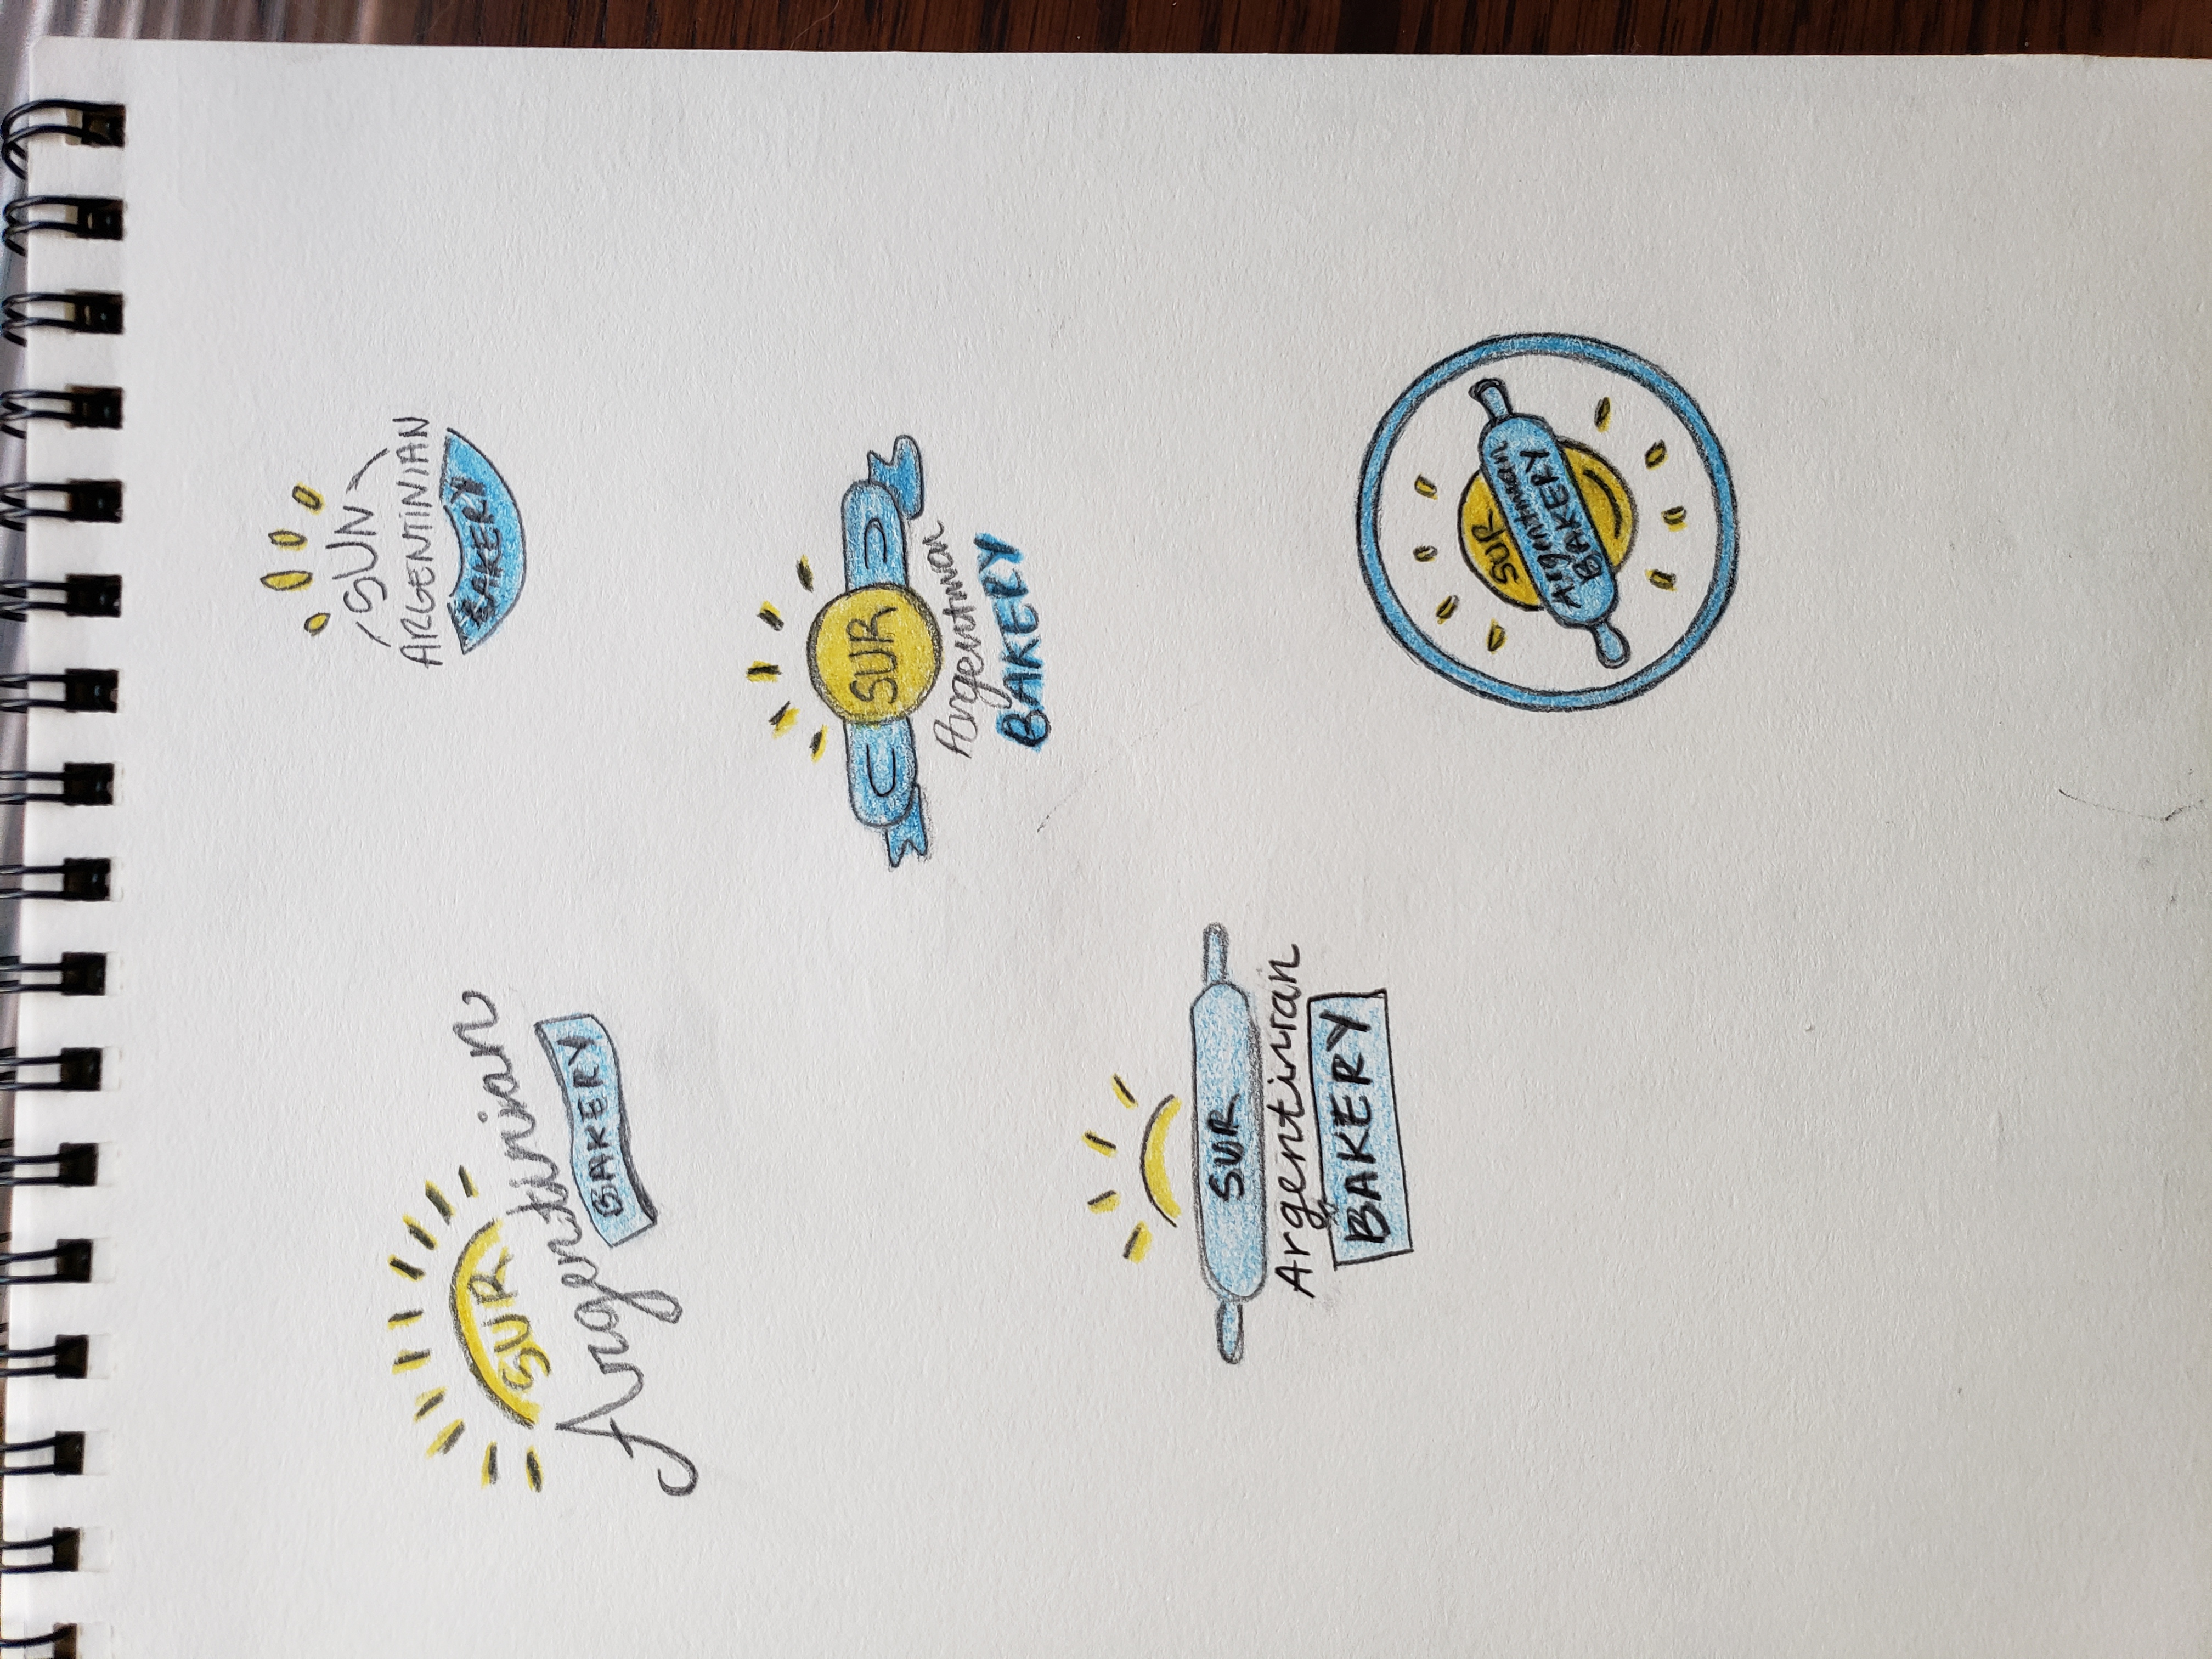 SUR
Argentinian
BAKERY
SUN
ARGENTINIAN
BAKERY
SUR
Argentinian
BAKERY
SUR
Argentinian
BAKERY
SUR
Argentinian
BAKERY